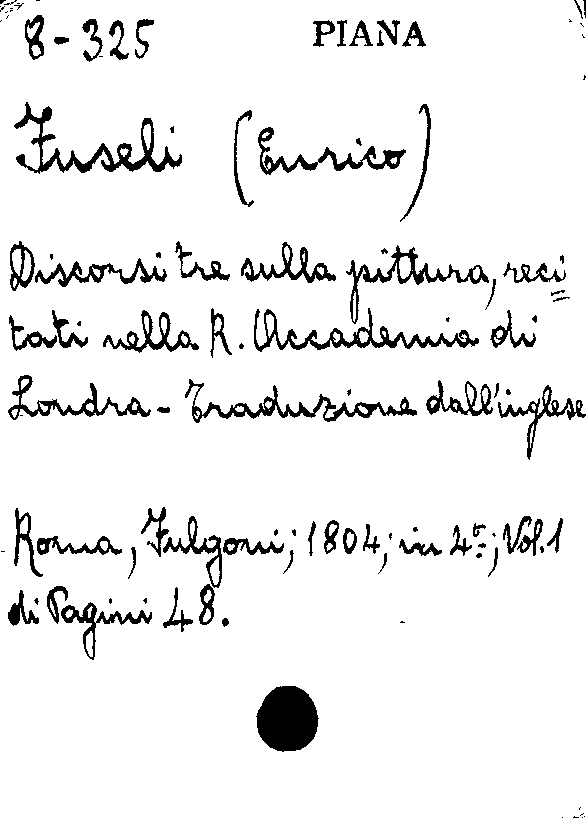 8-325 PIANA
Fuseli (Enrico)
Discorsi tre sulla pittura, reci=
tati nella R. Accademia di
Londra - Traduzione dall'inglese
Roma, Fulgoni; 1804; in 4º; Vol. 1
di Pagini 48.